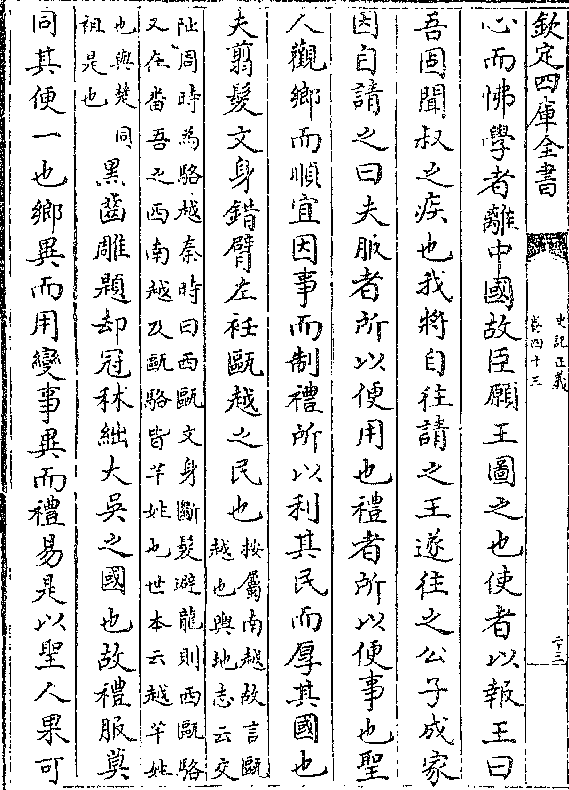 欽定四庫全書
史記正義
卷四十三
二十三
心而怫學者離中國故臣願王圖之也使者以報王曰
吾固聞叔之疾也我將自往請之王遂往之公子成家
因自請之曰夫服者所以便用也禮者所以便事也聖
人觀鄉而順宜因事而制禮所以利其民而厚其國也
夫翦髮文身錯臂左衽甌越之民也按屬南越故言甌
越也輿地志云交
阯周時為駱越秦時曰西甌文身斷髮避龍則西甌駱
又在番吾之西南越及甌駱皆芊姓也世本云越芊姓
也與楚同
祖是也黑齒雕題却冠秫絀大吳之國也故禮服莫
同其便一也鄉異而用變事異而禮易是以聖人果可